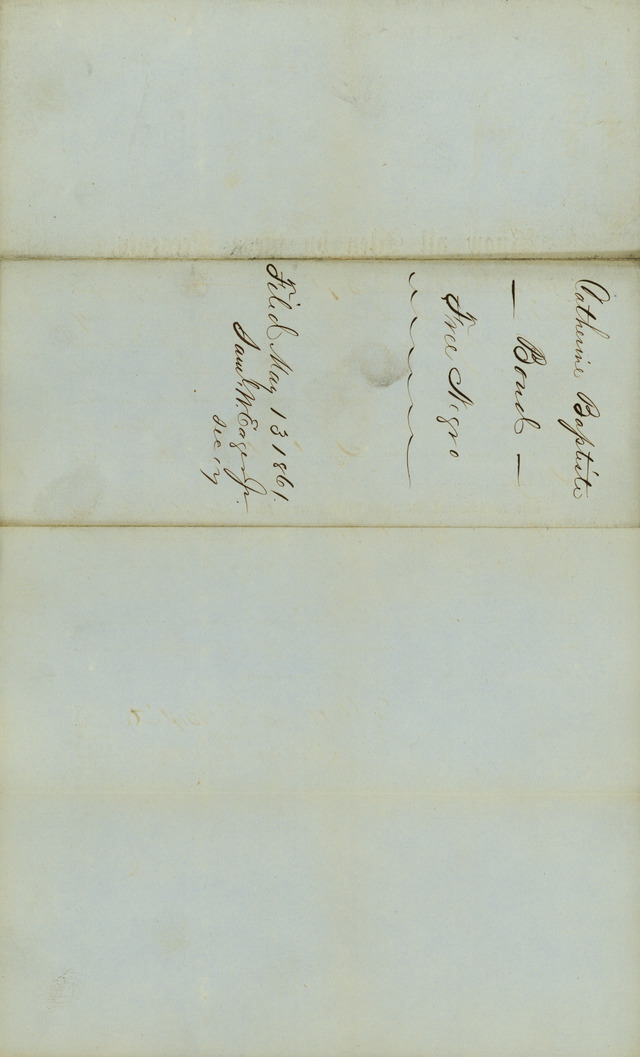 Catherine Baptiste
— Bond —
Free Negro
Filed May 13 1861.
Saml W Eager Jr.